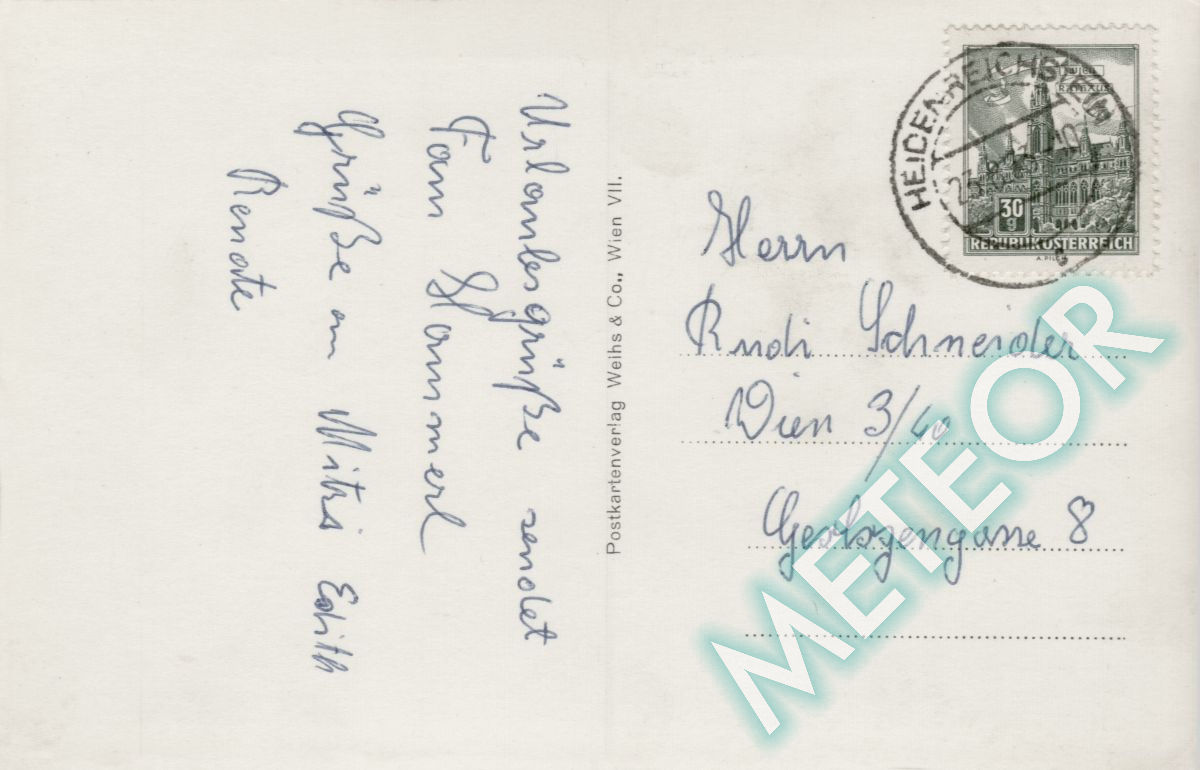 Urlaubsgrüße sendet
Fam Hammerl
Grüße an Mitzi Edith
Renate
Postkartenverlag Weihs & Co., Wien VII.
HEIDENREICHSTEIN
WIEN
RATHAUS
30
g
REPUBLIK ÖSTERREICH
Herrn
Rudi Schneider
Wien 3/40
Geologengasse 8
METEOR